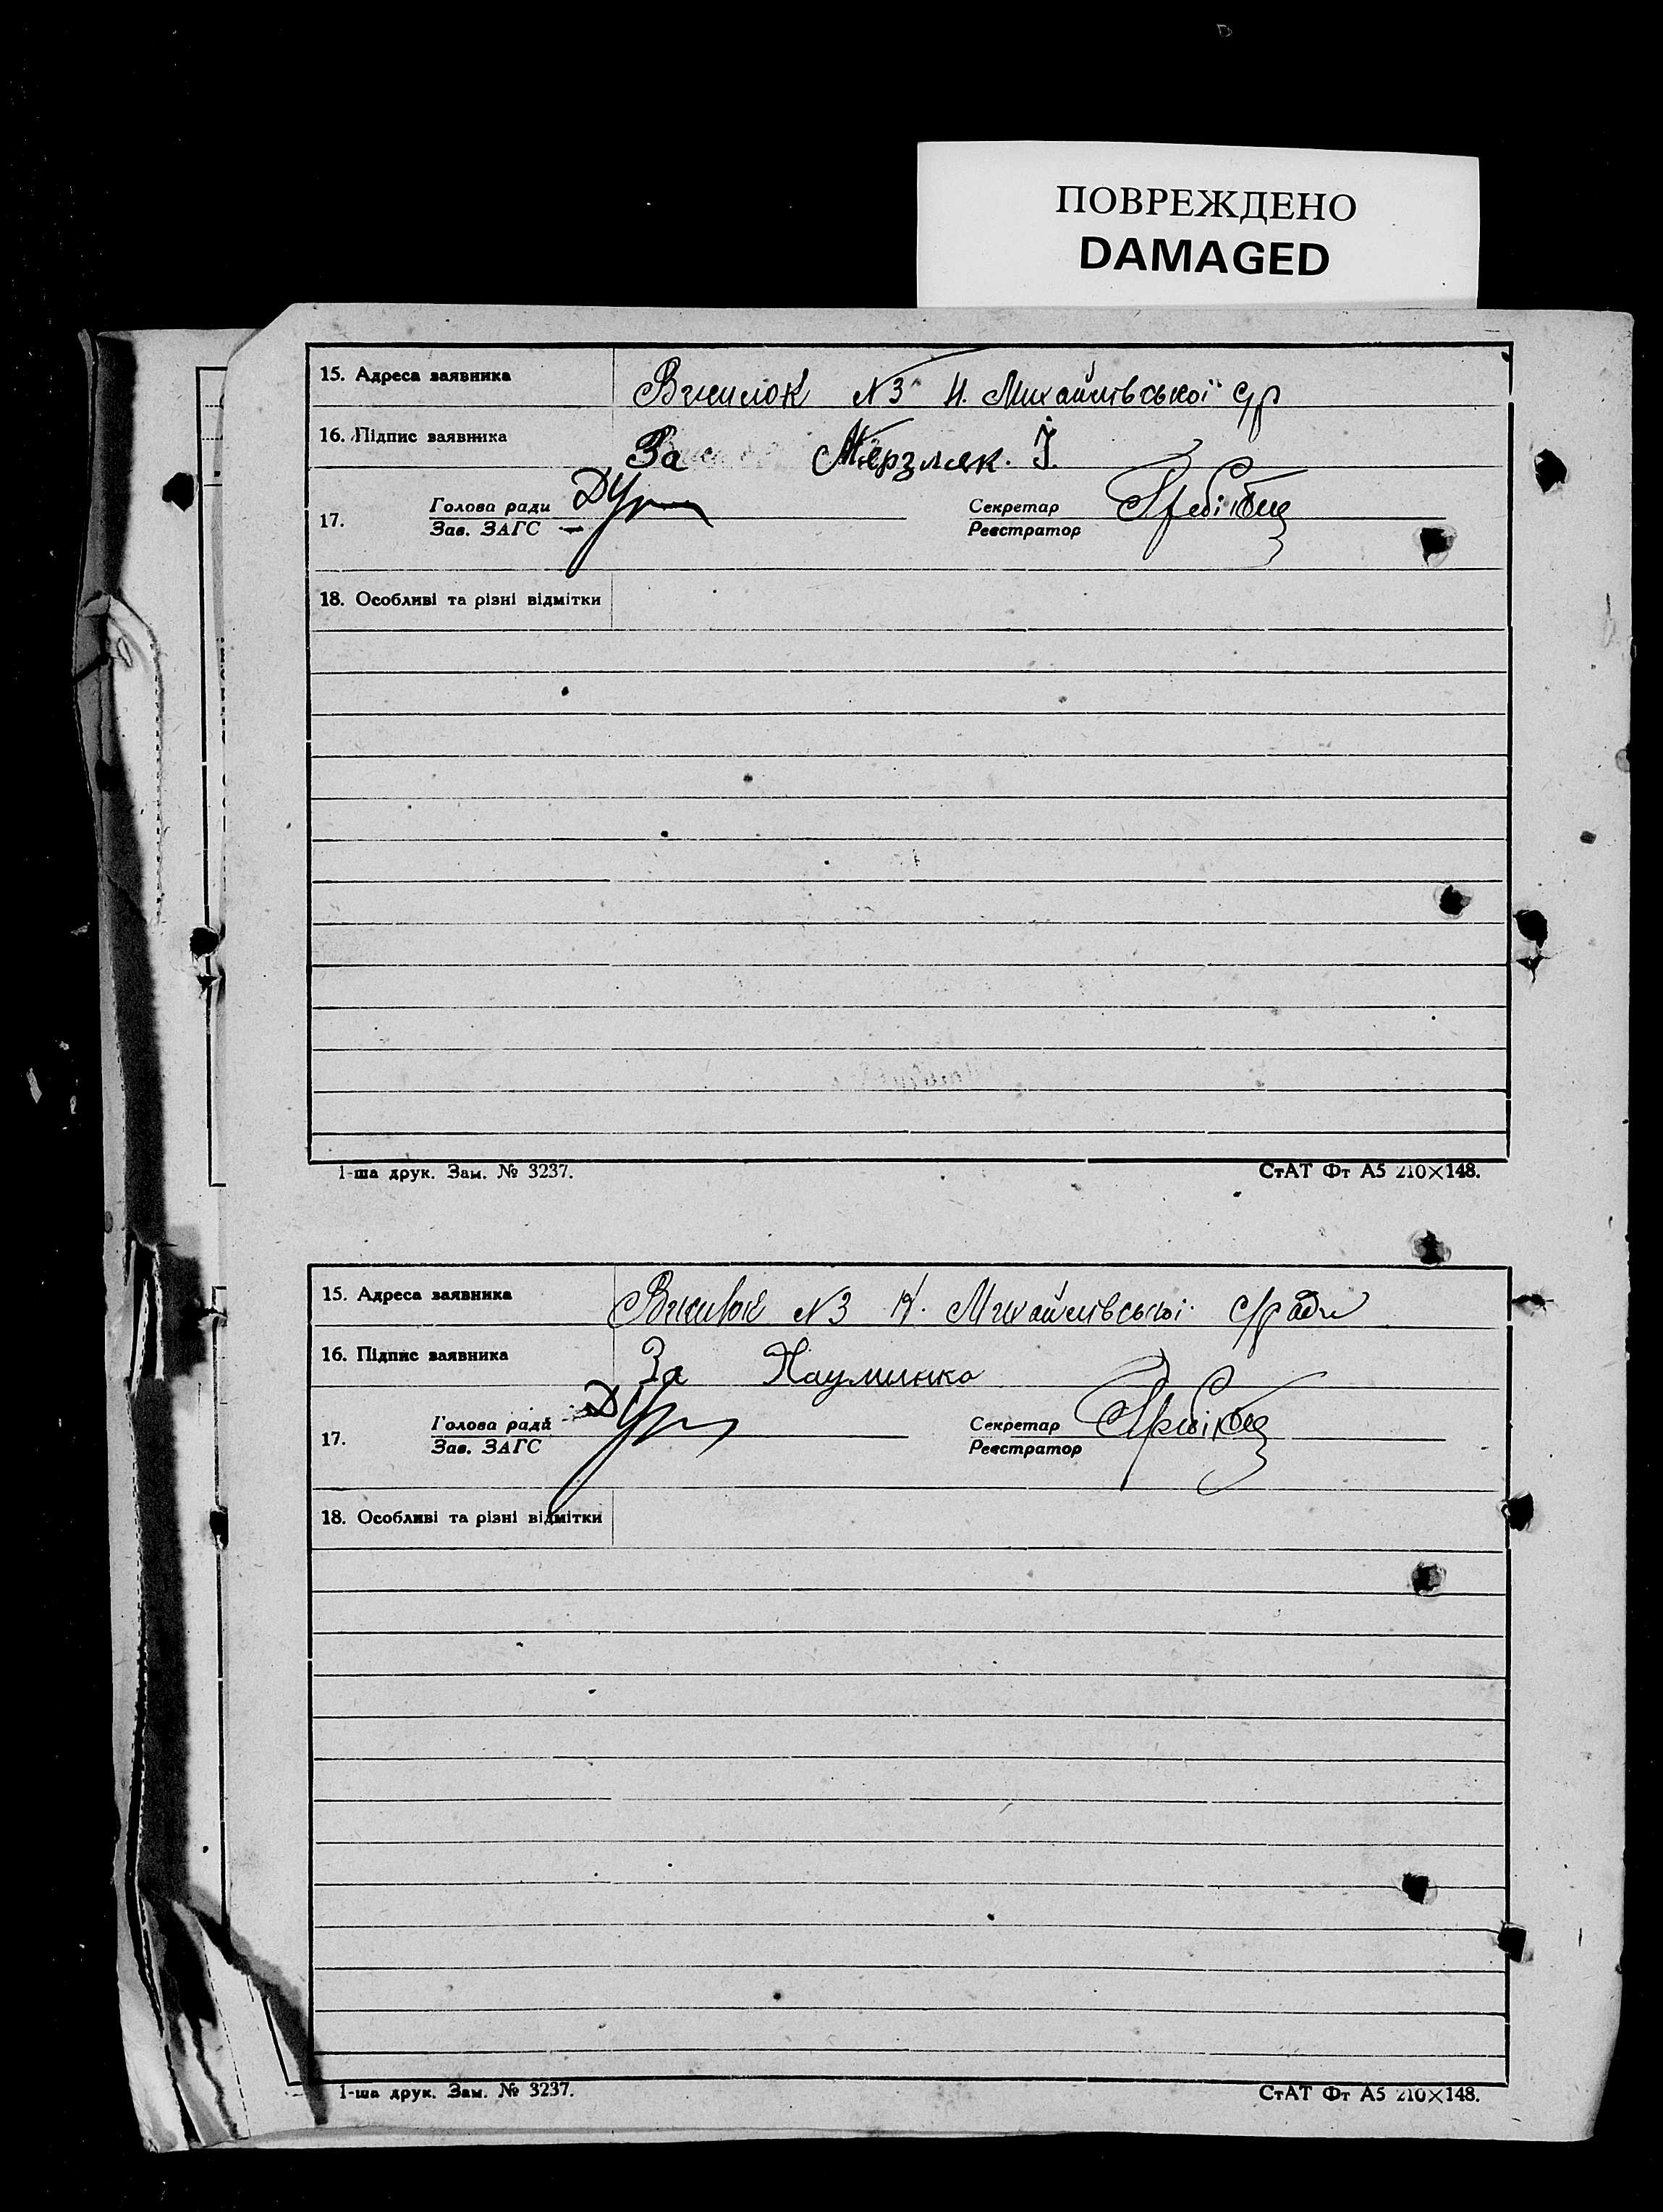 ПОВРЕЖДЕНО
DAMAGED
15. Адреса заявника
Висилок №3 Н. Михайлівської с/р
16. Підпис заявника
За Мерзляк. І.
17. Голова ради Секретар
Зав. ЗАГС Реєстратор
18. Особливі та різні відмітки
1-ша друк. Зам. № 3237. СтАТ Фт А5 210×148.
15. Адреса заявника
№3 Н. Михайлівської с/ради
16. Підпис заявника
За Науменко
17. Голова ради Секретар
Зав. ЗАГС Реєстратор
18. Особливі та різні відмітки
1-ша друк. Зам. № 3237. СтАТ Фт А5 210×148.